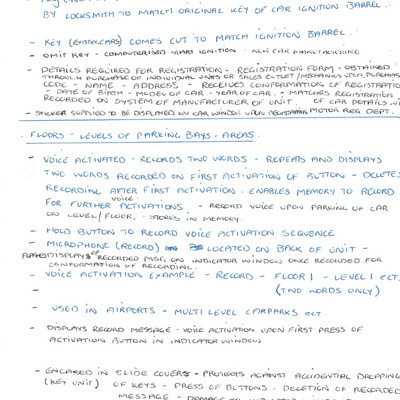 BY LOCKSMITH TO MATCH ORIGINAL KEY OF CAR IGNITION BARREL.
- KEY (EXISTING CARS) COMES CUT TO MATCH IGNITION BARREL
- OMIT KEY - COMPUTERISED START IGNITION - NEW CAR MANUFACTURING
- DETAILS REQUIRED FOR REGISTRATION - REGISTRATION FORM - OBTAINED
THROUGH PURCHASE OF INDIVIDUAL UNITS OR SALES OUTLET / MECHANICS UPON PURCHASE
CODE - NAME - ADDRESS - RECEIVES CONFIRMATION OF REGISTRATION
- DATE OF BIRTH - MODEL OF CAR - YEAR OF CAR - MATCHES REGISTRATION
RECORDED ON SYSTEM OF MANUFACTURER OF UNIT. OF CAR DETAILS
- STICKER SUPPLIED TO BE DISPLAYED ON CAR WINDOW UPON REGISTRATION MOTOR REG DEPT.
FLOORS - LEVELS OF PARKING BAYS - AREAS.
- VOICE ACTIVATED - RECORDS TWO WORDS - REPEATS AND DISPLAYS
TWO WORDS RECORDED ON FIRST ACTIVATION OF BUTTON - DELETES
RECORDING AFTER FIRST ACTIVATION. ENABLES MEMORY TO RECORD
FOR FURTHER VOICE ACTIVATIONS - RECORD VOICE UPON PARKING OF CAR
ON LEVEL/FLOOR. STORES IN MEMORY.
- HOLD BUTTON TO RECORD VOICE ACTIVATION SEQUENCE
- MICROPHONE (RECORD) LOCATED ON BACK OF UNIT -
FLASHES/DISPLAYS OF RECORDED MSG, ON INDICATOR WINDOW ONCE RECORDED FOR
CONFORMATION OF RECORDING.
- VOICE ACTIVATION EXAMPLE - RECORD - FLOOR 1 - LEVEL 1 ECT.
- (TWO WORDS ONLY)
- USED IN AIRPORTS - MULTI LEVEL CARPARKS ECT
- DISPLAYS RECORD MESSAGE - VOICE ACTIVATION UPON FIRST PRESS OF
ACTIVATION BUTTON IN INDICATOR WINDOW
- ENCASED IN SLIDE COVERS - PROTECTS AGAINST ACCIDENTAL DROPPING
(KEY UNIT) OF KEYS - PRESS OF BUTTONS - DELETION OF RECORDED
MESSAGE - DAMAGE TO